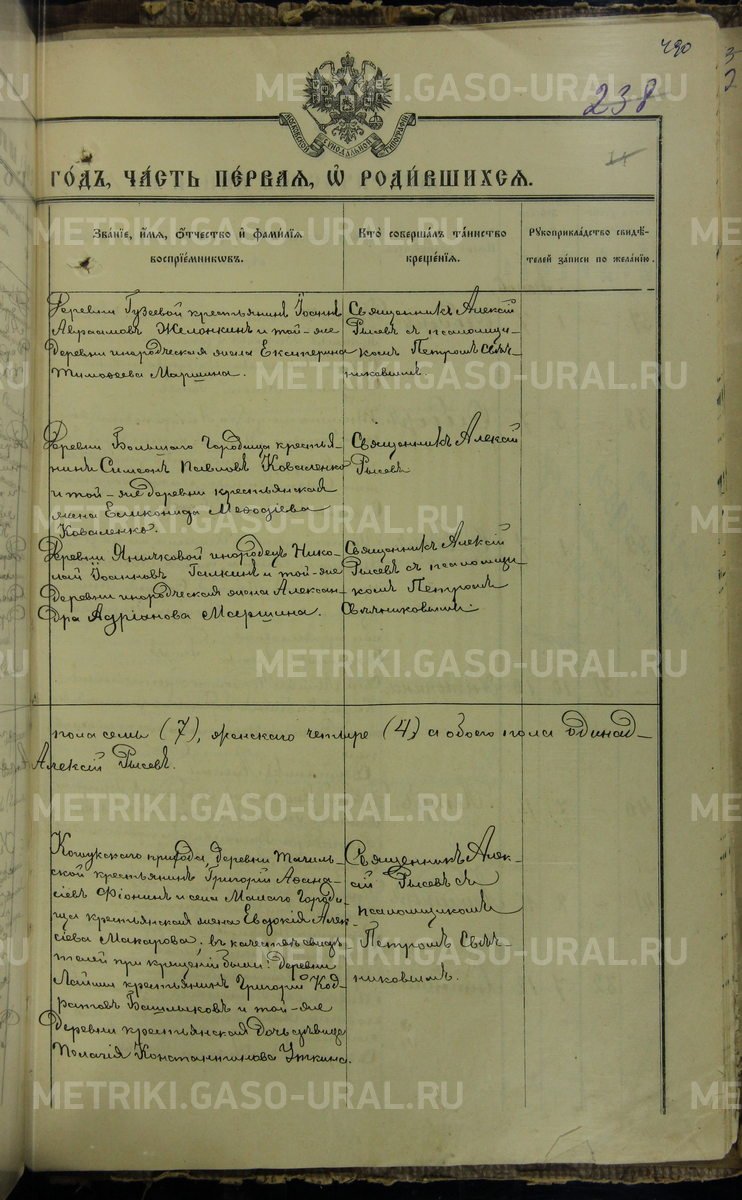 490
238
МОСКОВСКОЙ СѴНОДАЛЬНОЙ ТИПОГРАФІИ
ГО́ДЪ, ЧА́СТЬ ПЕ́РВАЯ, Ѽ РОДИ́ВШИХСЯ.
ЗВА́НІЕ, И́МЯ, Ѻ҆́ТЧЕСТВО И҆ ФАМИ́ЛІЯ
ВОСПРІЕ́МНИКѠВЪ.
КТО̀ СОВЕРША́ЛЪ ТА́ИНСТВО
КРЕЩЕ́НІЯ.
РꙋКОПРИКЛА́ДСТВО СВИДѢ́-
ТЕЛЕЙ ЗА́ПИСИ ПО ЖЕЛА́НІЮ.
Деревни Гузеевой крестьянинъ Іоаннъ
Авраамовъ Желонкинъ и той-же
деревни инородческая жена Екатерина
Тимоѳеева Маршина.
Священникъ Алексій
Рысевъ съ псаломщи-
комъ Петромъ Свѣч-
никовымъ.
Деревни Большаго Городища кресть-
нинъ Симеонъ Павловъ Коваленко
и той-же деревни крестьянская
жена Еликонида Меѳодіева
Коваленко.
Священникъ Алексій
Рысевъ
Деревни Янычковой инородецъ Нико-
лай Іоанновъ Галкинъ и той-же
деревни инородческая жена Алексан-
дра Адріанова Маршина.
Священникъ Алексій
Рысевъ съ псаломщи-
комъ Петромъ
Свѣчниковымъ.
пола семь (7), женскаго четыре (4) а обоего пола одинад-
Алексій Рысевъ.
Кошукскаго прихода, деревни Тагиль-
ской крестьянинъ Григорій Аѳана-
сіевъ Фіонинъ и села Малаго Городи-
ща крестьянская жена Евдокія Алек-
сіева Макарова; въ качествѣ свидѣ-
телей при крещеніи были: деревни
крестьянинъ Григорій Код-
ратовъ Башлыковъ и той-же
деревни крестьянская дочь дѣвица
Пелагія Константинова Уткина.
Священникъ Алек-
сій Рысевъ съ
псаломщикомъ
Петромъ Свѣч-
никовымъ.
METRIKI.GASO-URAL.RU